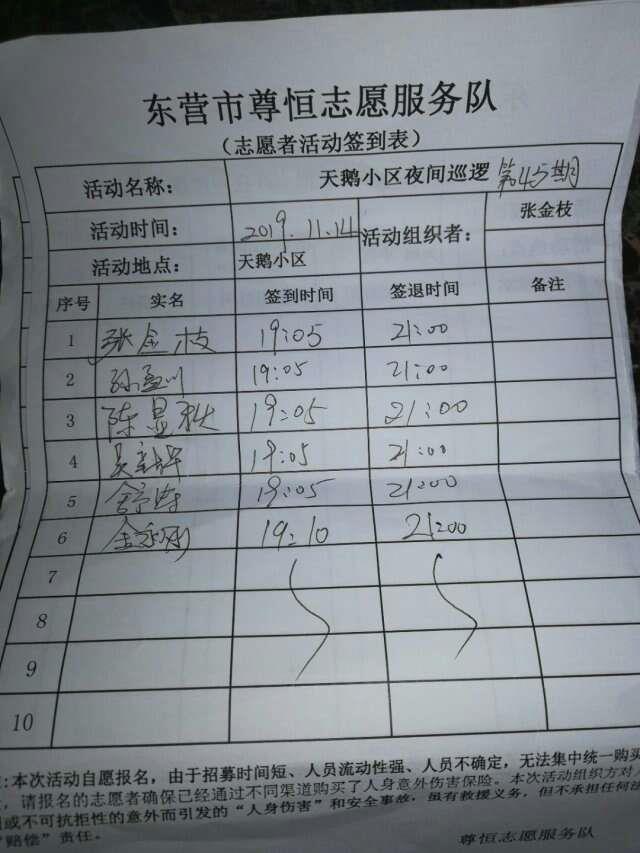 东营市尊恒志愿服务队
（志愿者活动签到表）
活动名称： 天鹅小区夜间巡逻 第45期
活动时间： 2019.11.14 活动组织者： 张金枝
活动地点： 天鹅小区
序号 实名 签到时间 签退时间 备注
1 张金枝 19:05 21:00
2 孙孟川 19:05 21:00
3 陈显秋 19:05 21:00
4 19:05 21:00
5 19:05 21:00
6 19:10 21:00
7
8
9
10
:本次活动自愿报名，由于招募时间短、人员流动性强、人员不确定，无法集中统一购买
，请报名的志愿者确保已经通过不同渠道购买了人身意外伤害保险。本次活动组织方对
或不可抗拒性的意外而引发的“人身伤害”和安全事故，虽有救援义务，但不承担任何
“赔偿”责任。
尊恒志愿服务队